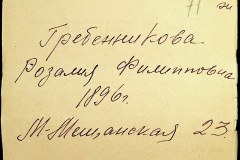 71
Гребенникова.
Розалия Филипповна
1896г.
М-Мещанская 23